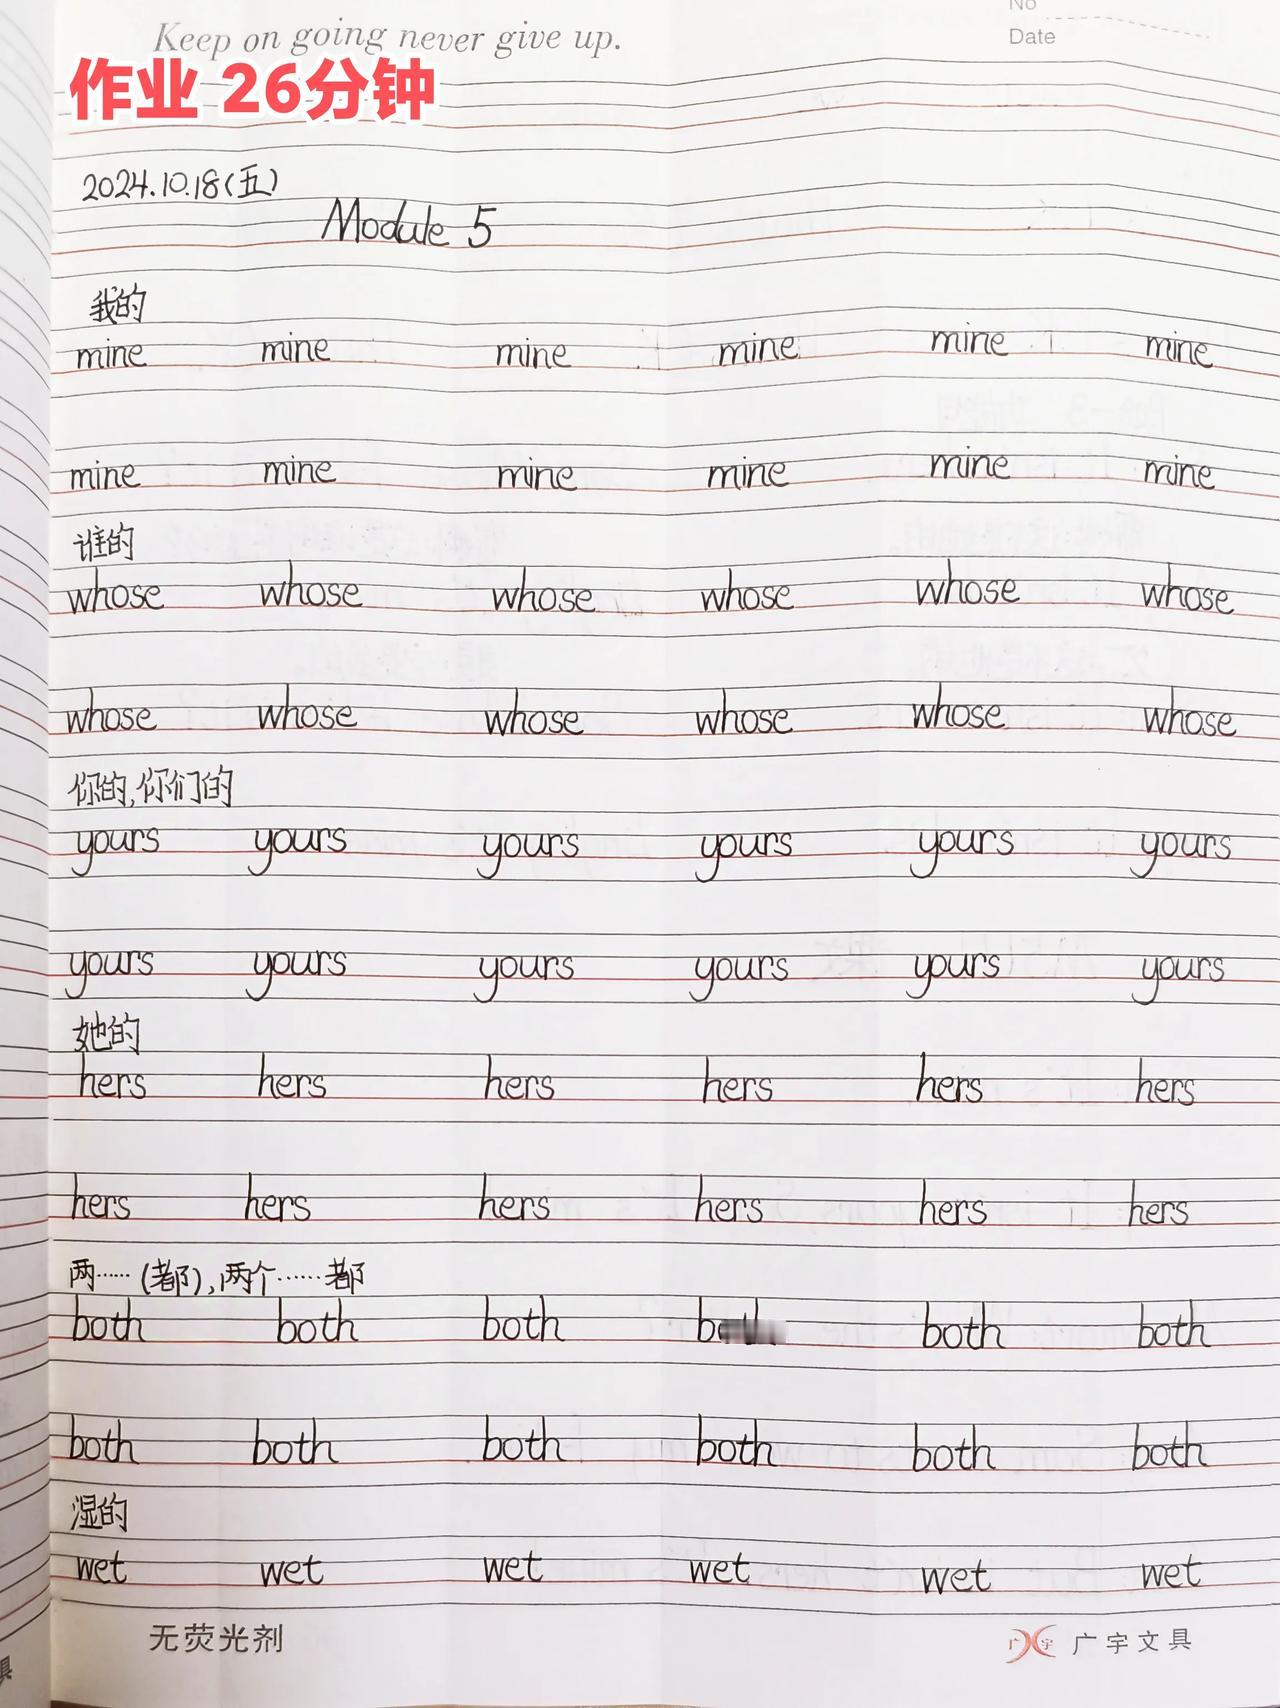 Keep on going never give up.
No
Date
作业 26分钟
2024.10.18(五)
Module 5
我的
mine mine mine mine mine mine
mine mine mine mine mine mine
谁的
whose whose whose whose whose whose
whose whose whose whose whose whose
你的,你们的
yours yours yours yours yours yours
yours yours yours yours yours yours
她的
hers hers hers hers hers hers
hers hers hers hers hers hers
两……(都),两个……都
both both both both both
both both both both both both
湿的
wet wet wet wet wet wet
无荧光剂
广字 广字文具